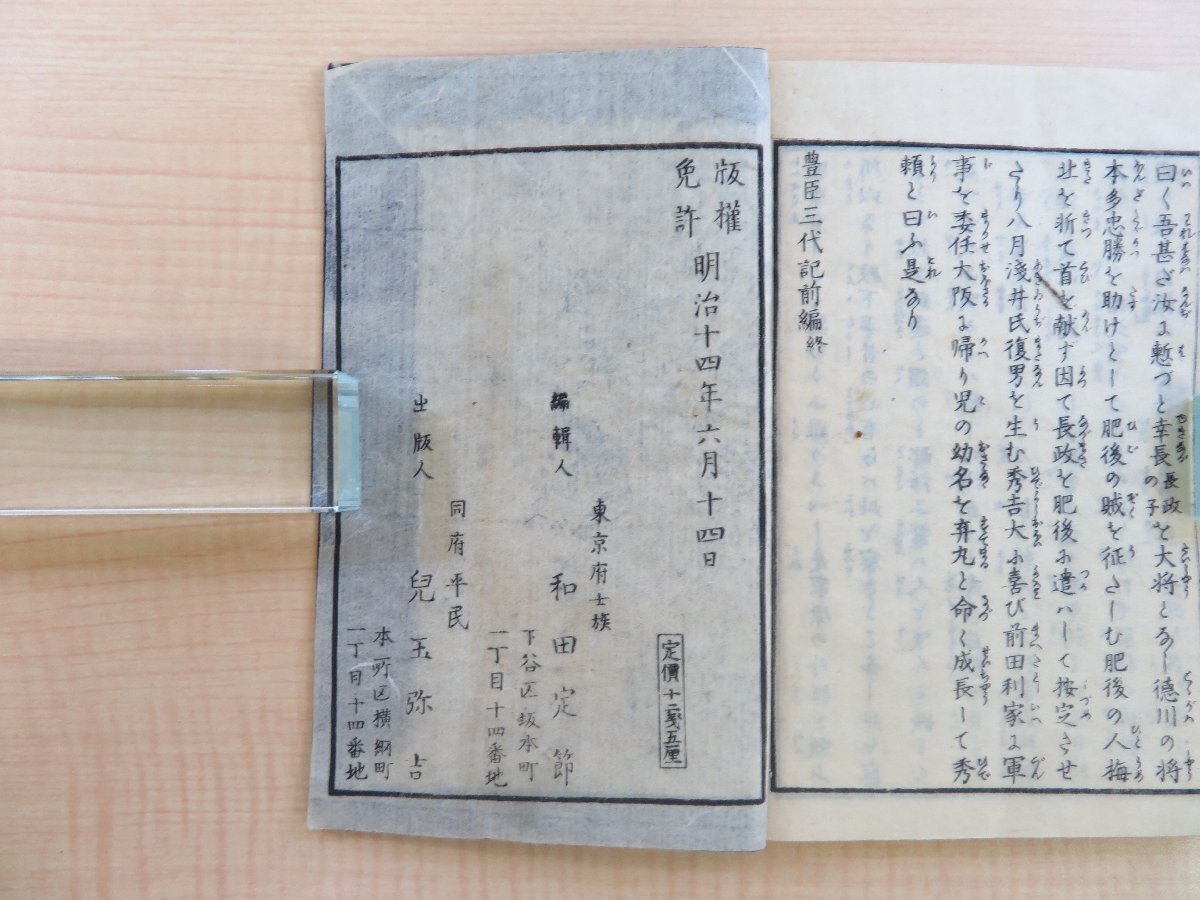 曰く吾甚ざ汝に慙づと幸長長政の子を大将となし徳川の将
本多忠勝を助けとして肥後の賊を征さしむ肥後の人梅
北を斬て首を献ず因て長政を肥後に遣ハして按定させ
さり八月淺井氏復男を生む秀吉大ふ喜び前田利家に軍
事を委任大阪に帰り児の幼名を弃丸と命く成長して秀
頼と曰ふ是なり
豊臣三代記前編終
版權免許
明治十四年六月十四日
定價十二戔五厘
東京府士族
編輯人 和田定節
下谷区坂本町
一丁目十四番地
同府平民
出版人 兒玉弥吉
本所区横綱町
一丁目十四番地